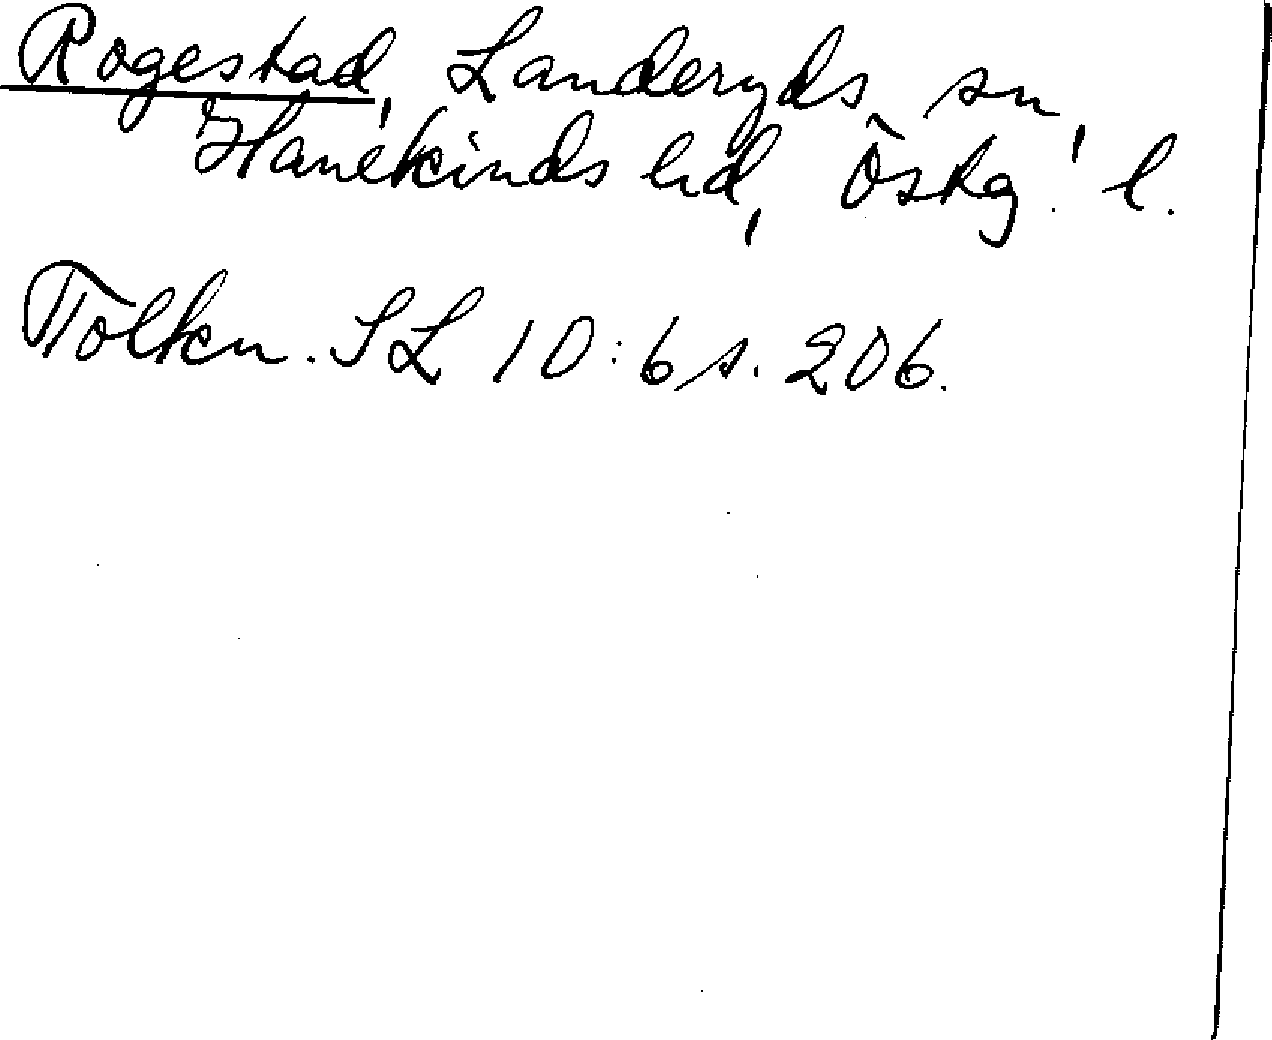 Rogestad, Landeryds sn,
Hanekinds hd, Östg. l.
Tolkn. SL 10:6 s. 206.